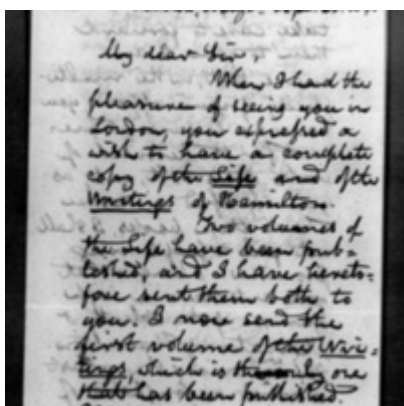 My dear Sir,
When I had the
pleasure of seeing you in
London, you expressed a
wish to have a complete
copy of the Life and of the
Writings of Hamilton.
Two volumes of
the Life have been pub-
lished, and I have hereto-
fore sent them both to
you. I now send the
first volume of the Wri-
tings, which is the only one
that has been published.